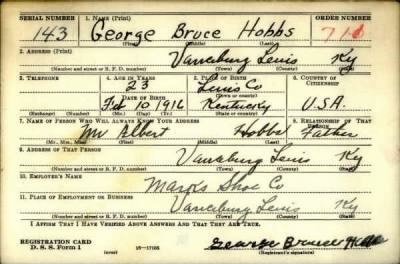 SERIAL NUMBER 1. NAME (Print) ORDER NUMBER
143 George Bruce Hobbs 710
(First) (Middle) (Last)
2. ADDRESS (Print)
Vanceburg Lewis Ky
(Number and street or R. F. D. number) (Town) (County) (State)
3. TELEPHONE 4. AGE IN YEARS 5. PLACE OF BIRTH 6. COUNTRY OF CITIZENSHIP
23 Lewis Co
DATE OF BIRTH (Town or county)
Feb 10 1916 Kentucky U.S.A.
(Exchange) (Number) (Mo.) (Day) (Yr.) (State or country)
7. NAME OF PERSON WHO WILL ALWAYS KNOW YOUR ADDRESS 8. RELATIONSHIP OF THAT PERSON
Mr Albert Hobbs Father
(Mr., Mrs., Miss) (First) (Middle) (Last)
9. ADDRESS OF THAT PERSON
Vanceburg Lewis Ky
(Number and street or R. F. D. number) (Town) (County) (State)
10. EMPLOYER'S NAME
Shoe Co
11. PLACE OF EMPLOYMENT OR BUSINESS
Vanceburg Lewis Ky
(Number and street or R. F. D. number) (Town) (County) (State)
I AFFIRM THAT I HAVE VERIFIED ABOVE ANSWERS AND THAT THEY ARE TRUE.
REGISTRATION CARD George Bruce Hobbs
D. S. S. FORM 1 (over) 16-17105 (Registrant's signature)